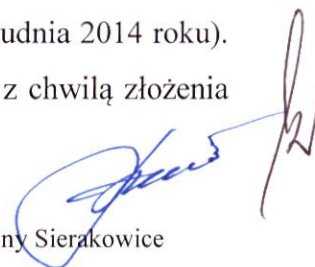 udnia 2014 roku).
z chwilą złożenia
ny Sierakowice